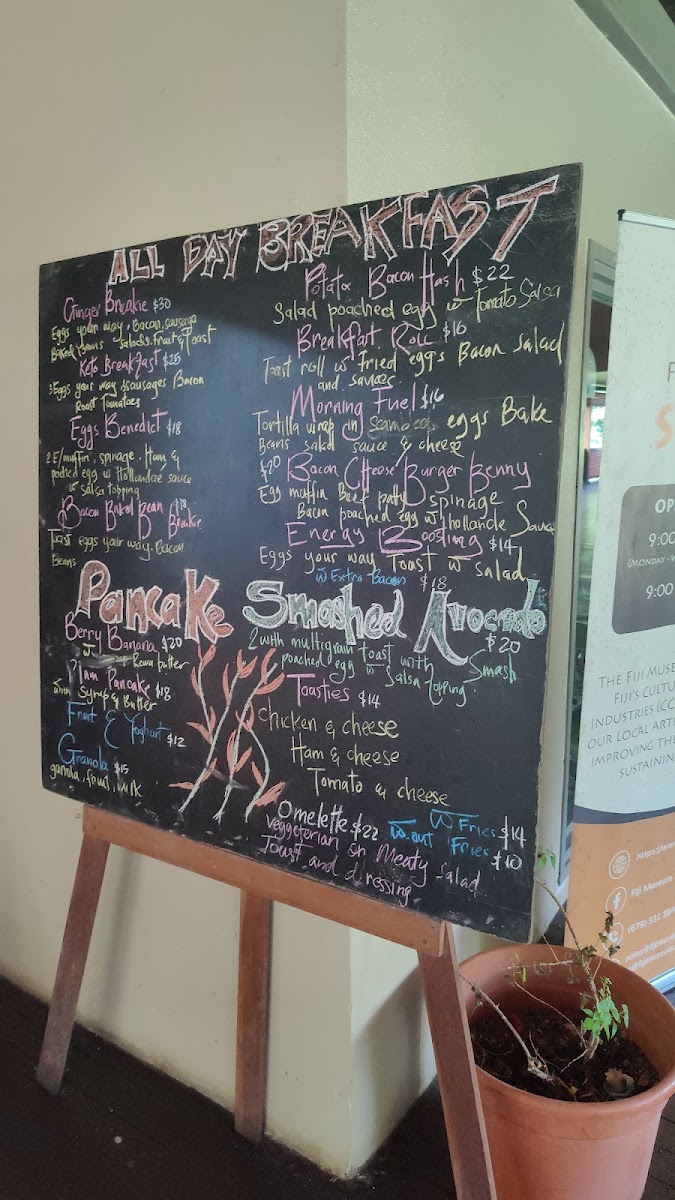 ALL DAY BREAKFAST
Ginger Breakie $30
Eggs your way, Bacon, sausage
Baked Beans Salads. fruit & Toast
Keto Breakfast $25
3 Eggs your way sausages Bacon
Roast Tomatoes
Eggs Benedict $18
2 E/muffin, spinage, Ham, &
poched egg w Hollandare sauce
salsa topping
Bacon Baked bean Breakie $18
Toast eggs your way. Bacon
Beans
Pancake
Berry Banana $20
butter
Plain Pancake $18
with Syrup & Butter
Fruit & Yoghurt $12
Granola $15
granola, fruit, milk
Potato Bacon Hash $22
Salad poached egg w Tomato Salsa
Breakfast Roll $16
Toast roll w fried eggs Bacon Salad
and sauces
Morning Fuel $16
Tortilla wrap in eggs Bake
Beans salad sauce & cheese
$20 Bacon Cheese Burger Benny
Egg muffin Beef patty Spinage
Bacon poached egg w hollande Sauce
Energy Boosting $14
Eggs your way Toast w salad
w Extra Bacon $18
Smashed Avocado
$20
2 with multigrain toast with Smash
poached egg w Salsa topping
Toasties $14
Chicken & cheese
Ham & cheese
Tomato & cheese
W Fries $14
w.out Fries $10
Omelette $22
Veggeterian or Meaty Salad
Toast and dressing
F
S
OP
9:00
(MONDAY -
9:00
THE FIJI MUSE
FIJI'S CULTU
INDUSTRIES (CC
OUR LOCAL ARTI
IMPROVING THE
SUSTAINING
https://ww
Fiji Museum
(679) 331 59
sales@fijimus